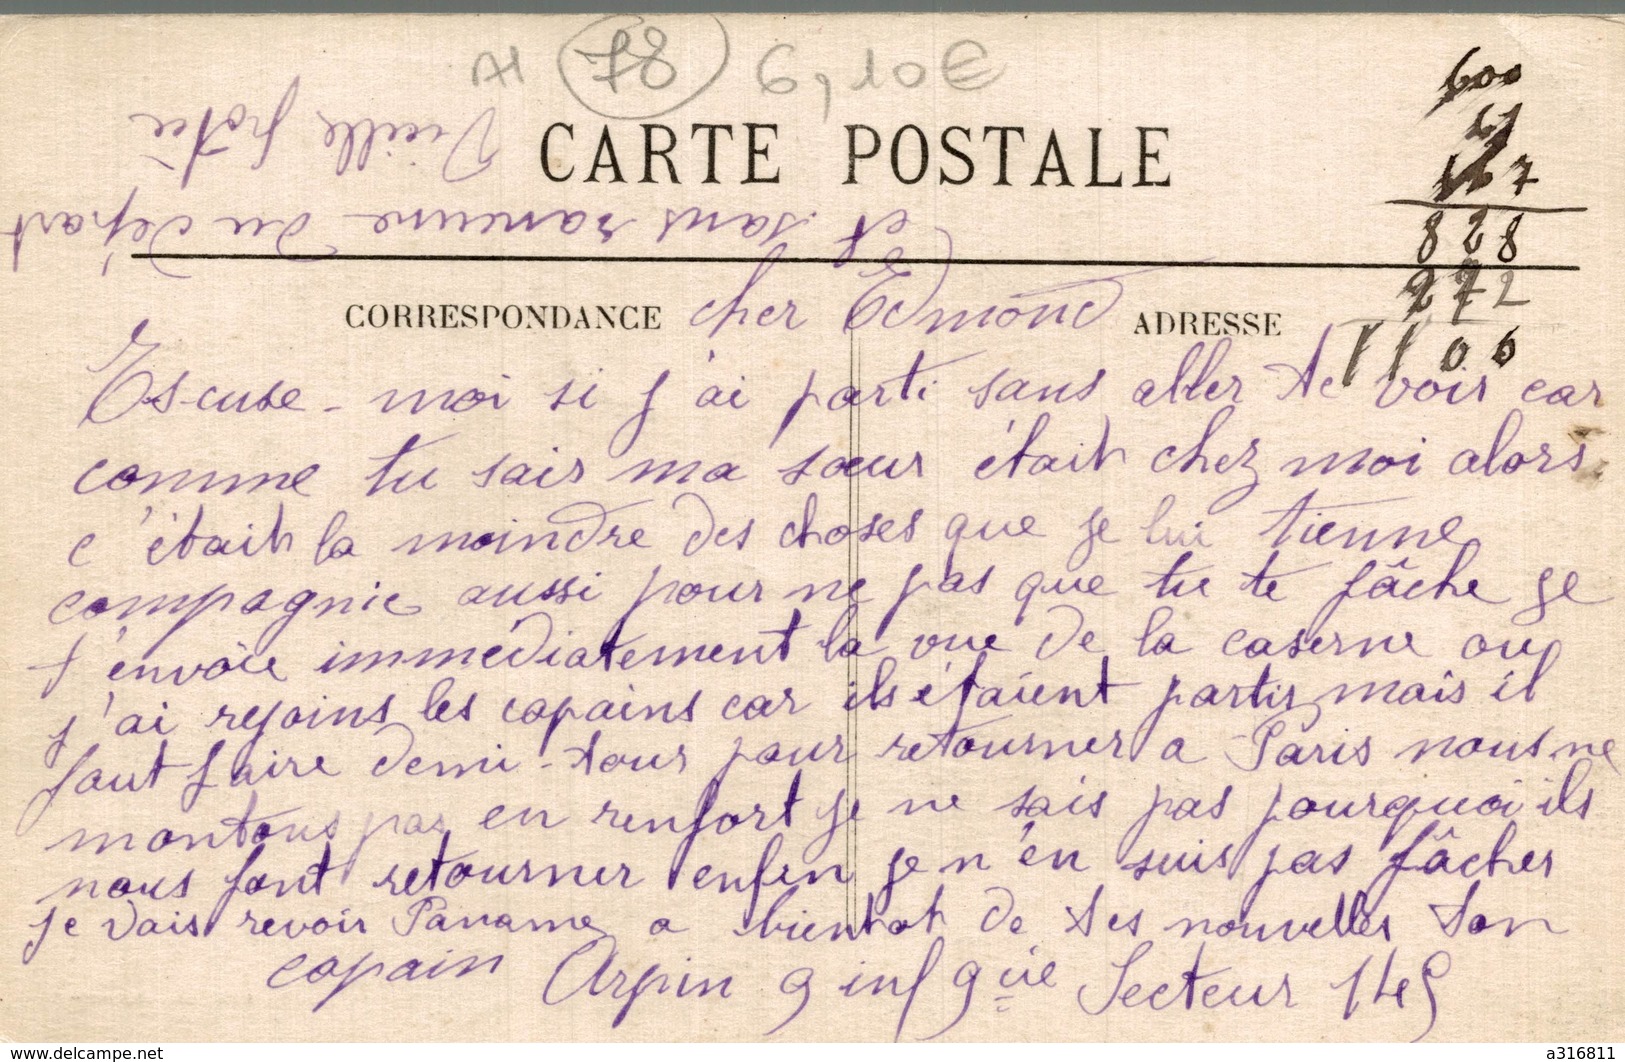 A1 78 6,10€
CARTE POSTALE
600
61
167
828
272
1100
CORRESPONDANCE
ADRESSE
cher Edmond
Escuse-moi si j'ai parti sans aller te voir car
comme tu sais ma sœur était chez moi alors
c'était la moindre des choses que je lui tienne
compagnie aussi pour ne pas que tu te fâche je
t'envoie immédiatement la vue de la caserne ou
j'ai rejoins les copains car ils étaient partis mais il
faut faire demi-tour pour retourner a Paris nous ne
montons pas en renfort je ne sais pas pourquoi ils
nous font retourner enfin je n'en suis pas fâcher
je vais revoir Paname a bientot de tes nouvelles ton
copain Arpin 9 inf 9 cie Secteur 149
et sans rancune du départ
Vieille
www.delcampe.net
a316811